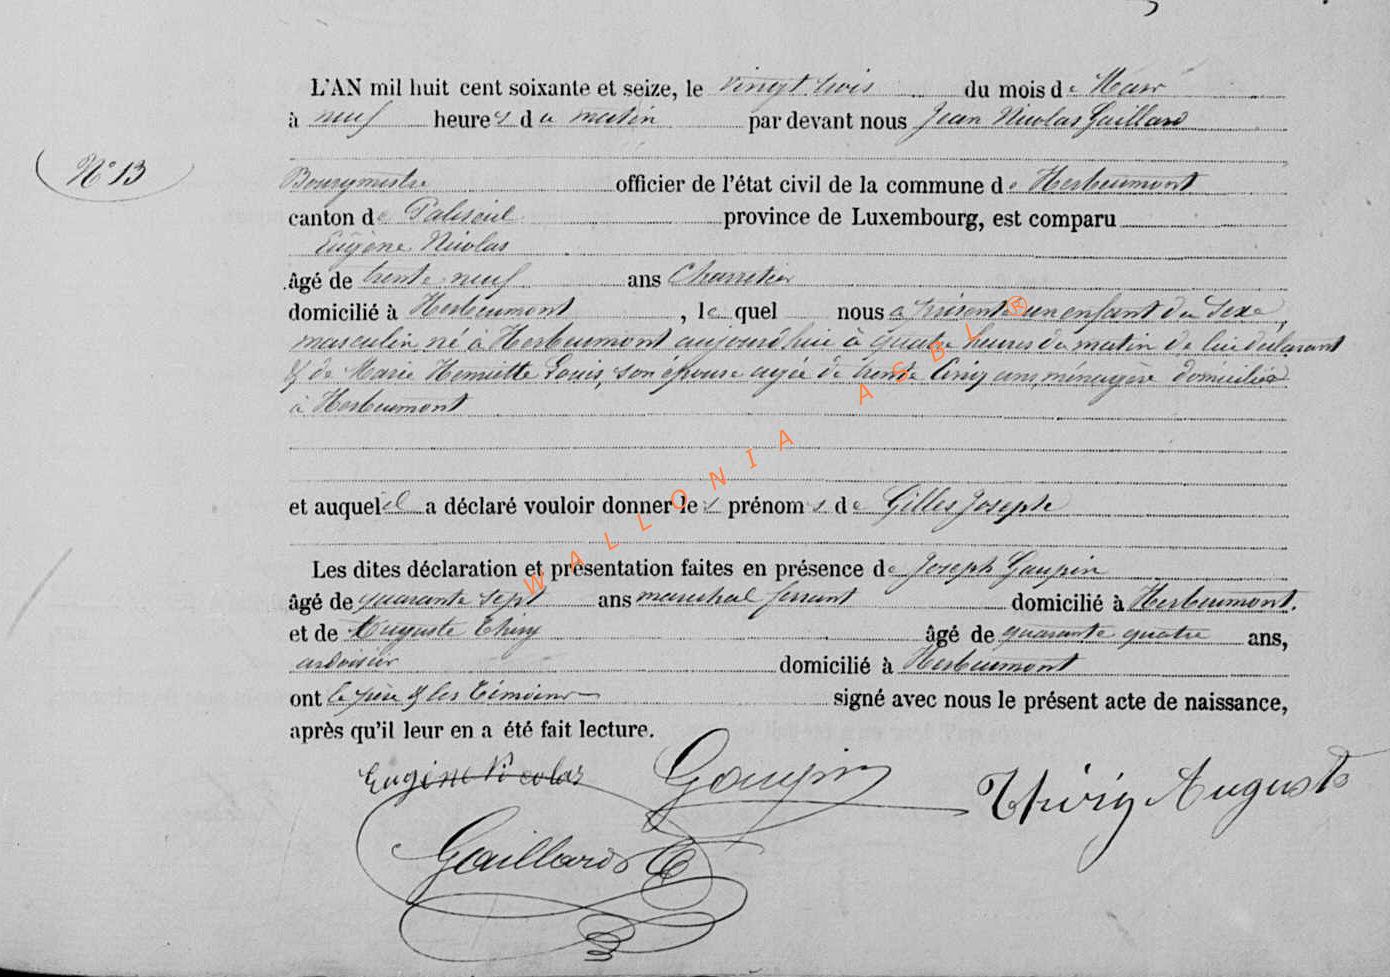 L'AN mil huit cent soixante et seize, le vingt trois du mois de Mars
à neuf heures du matin par devant nous Jean Nicolas Gaillard
N° 13
Bourgmestre officier de l'état civil de la commune de Herbeumont
canton de Paliseul province de Luxembourg, est comparu
Eugène Nicolas
âgé de trente neuf ans Charretier
domicilié à Herbeumont, le quel nous a présenté un enfant du Sexe
masculin né à Herbeumont aujourd'hui à quatre heures du matin de lui déclarant
& de Marie Henriette Louis, son épouse agée de trente Cinq ans ménagère domiciliée
à Herbeumont
et auquel il a déclaré vouloir donner les prénoms de Gilles Joseph
Les dites déclaration et présentation faites en présence de Joseph Goupin
âgé de quarante sept ans maréchal ferrant domicilié à Herbeumont.
et de Auguste Thiry âgé de quarante quatre ans,
ardoisier domicilié à Herbeumont
ont le père & les témoins signé avec nous le présent acte de naissance,
après qu'il leur en a été fait lecture.
Eugène Nicolas Goupin Thiry Auguste
Gaillard
WALLONIA ASBL ®